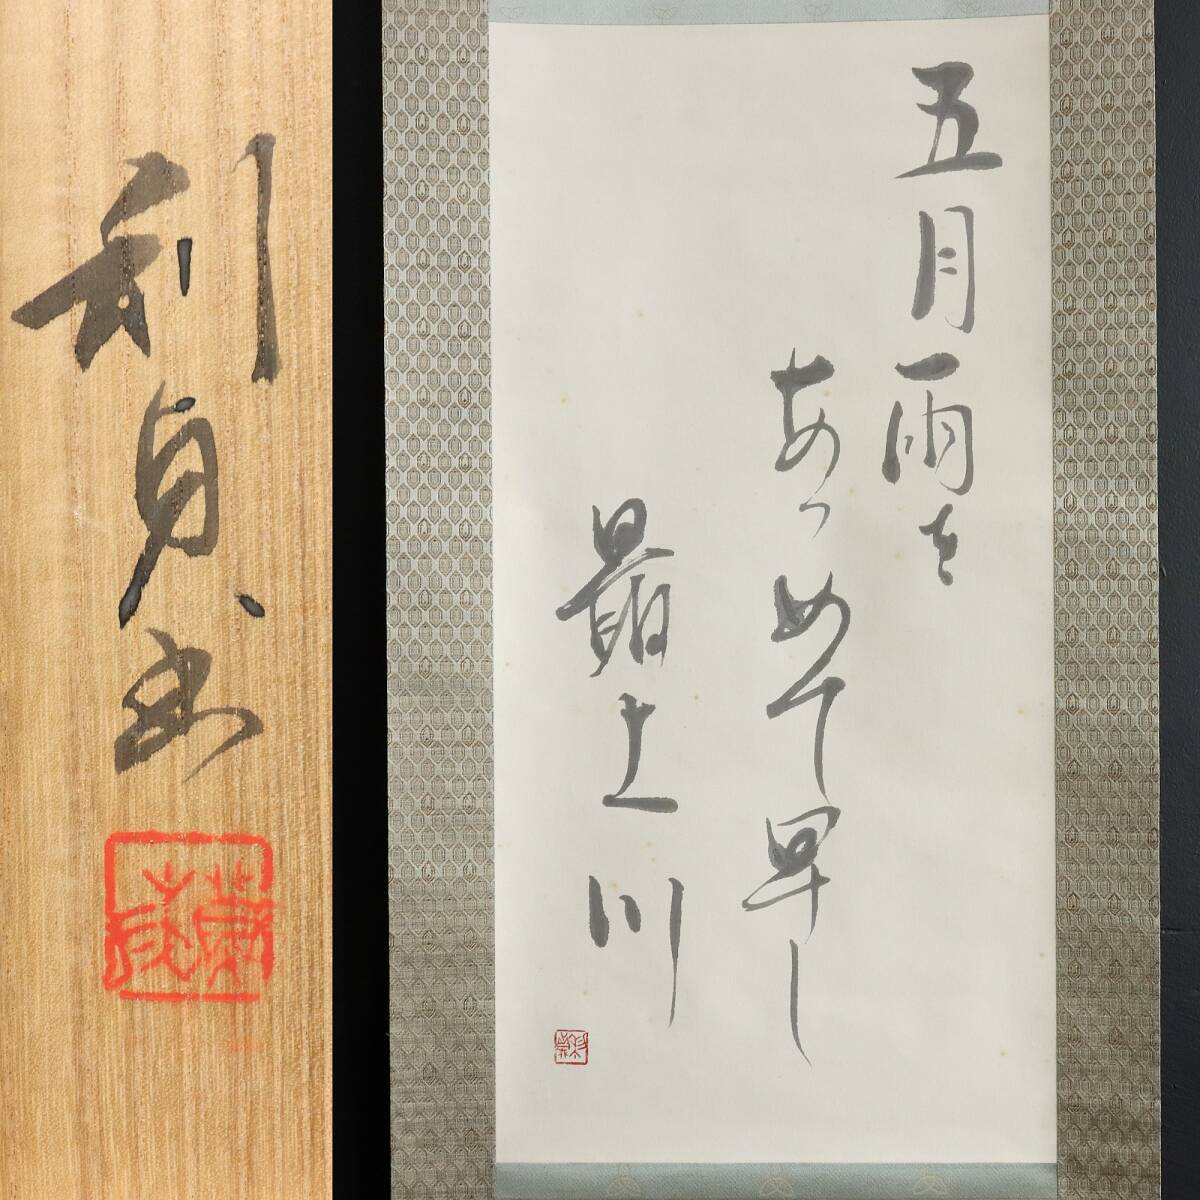 利貞書
五月雨を
あつめて早し
最上川